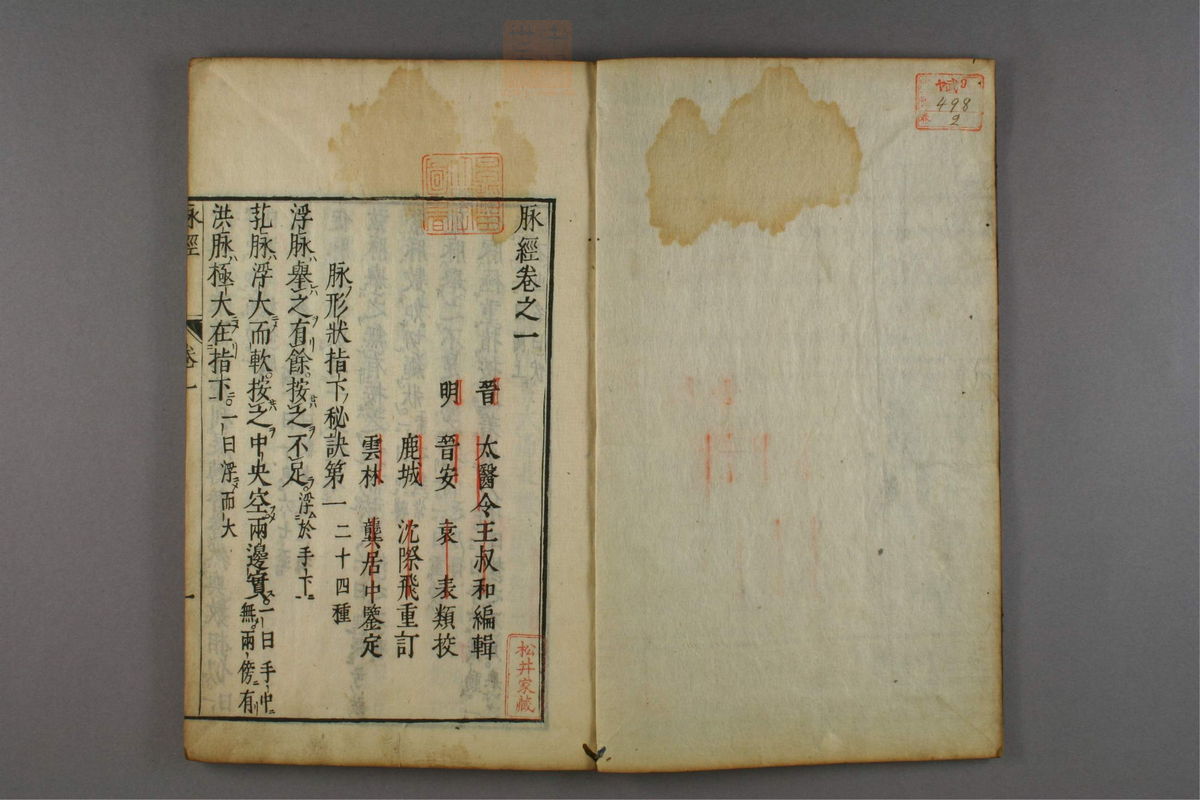 498
2
脉經卷之一
晉 太醫令王叔和編輯
明 晉安 袁表類挍
鹿城 沈際飛重訂
雲林 龔居中鑒定
脉形狀指下秘訣第一 二十四種
浮脉舉之有餘按之不足 浮於手下
芤脉浮大而軟按之中央空兩邊實 一曰手中無兩傍有
洪脉極大在指下 一曰浮而大
脉經 卷一 一
松井家藏